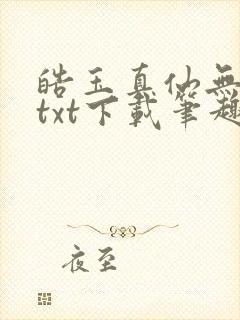 皓玉真仙無
txt下載筆趣
夜至